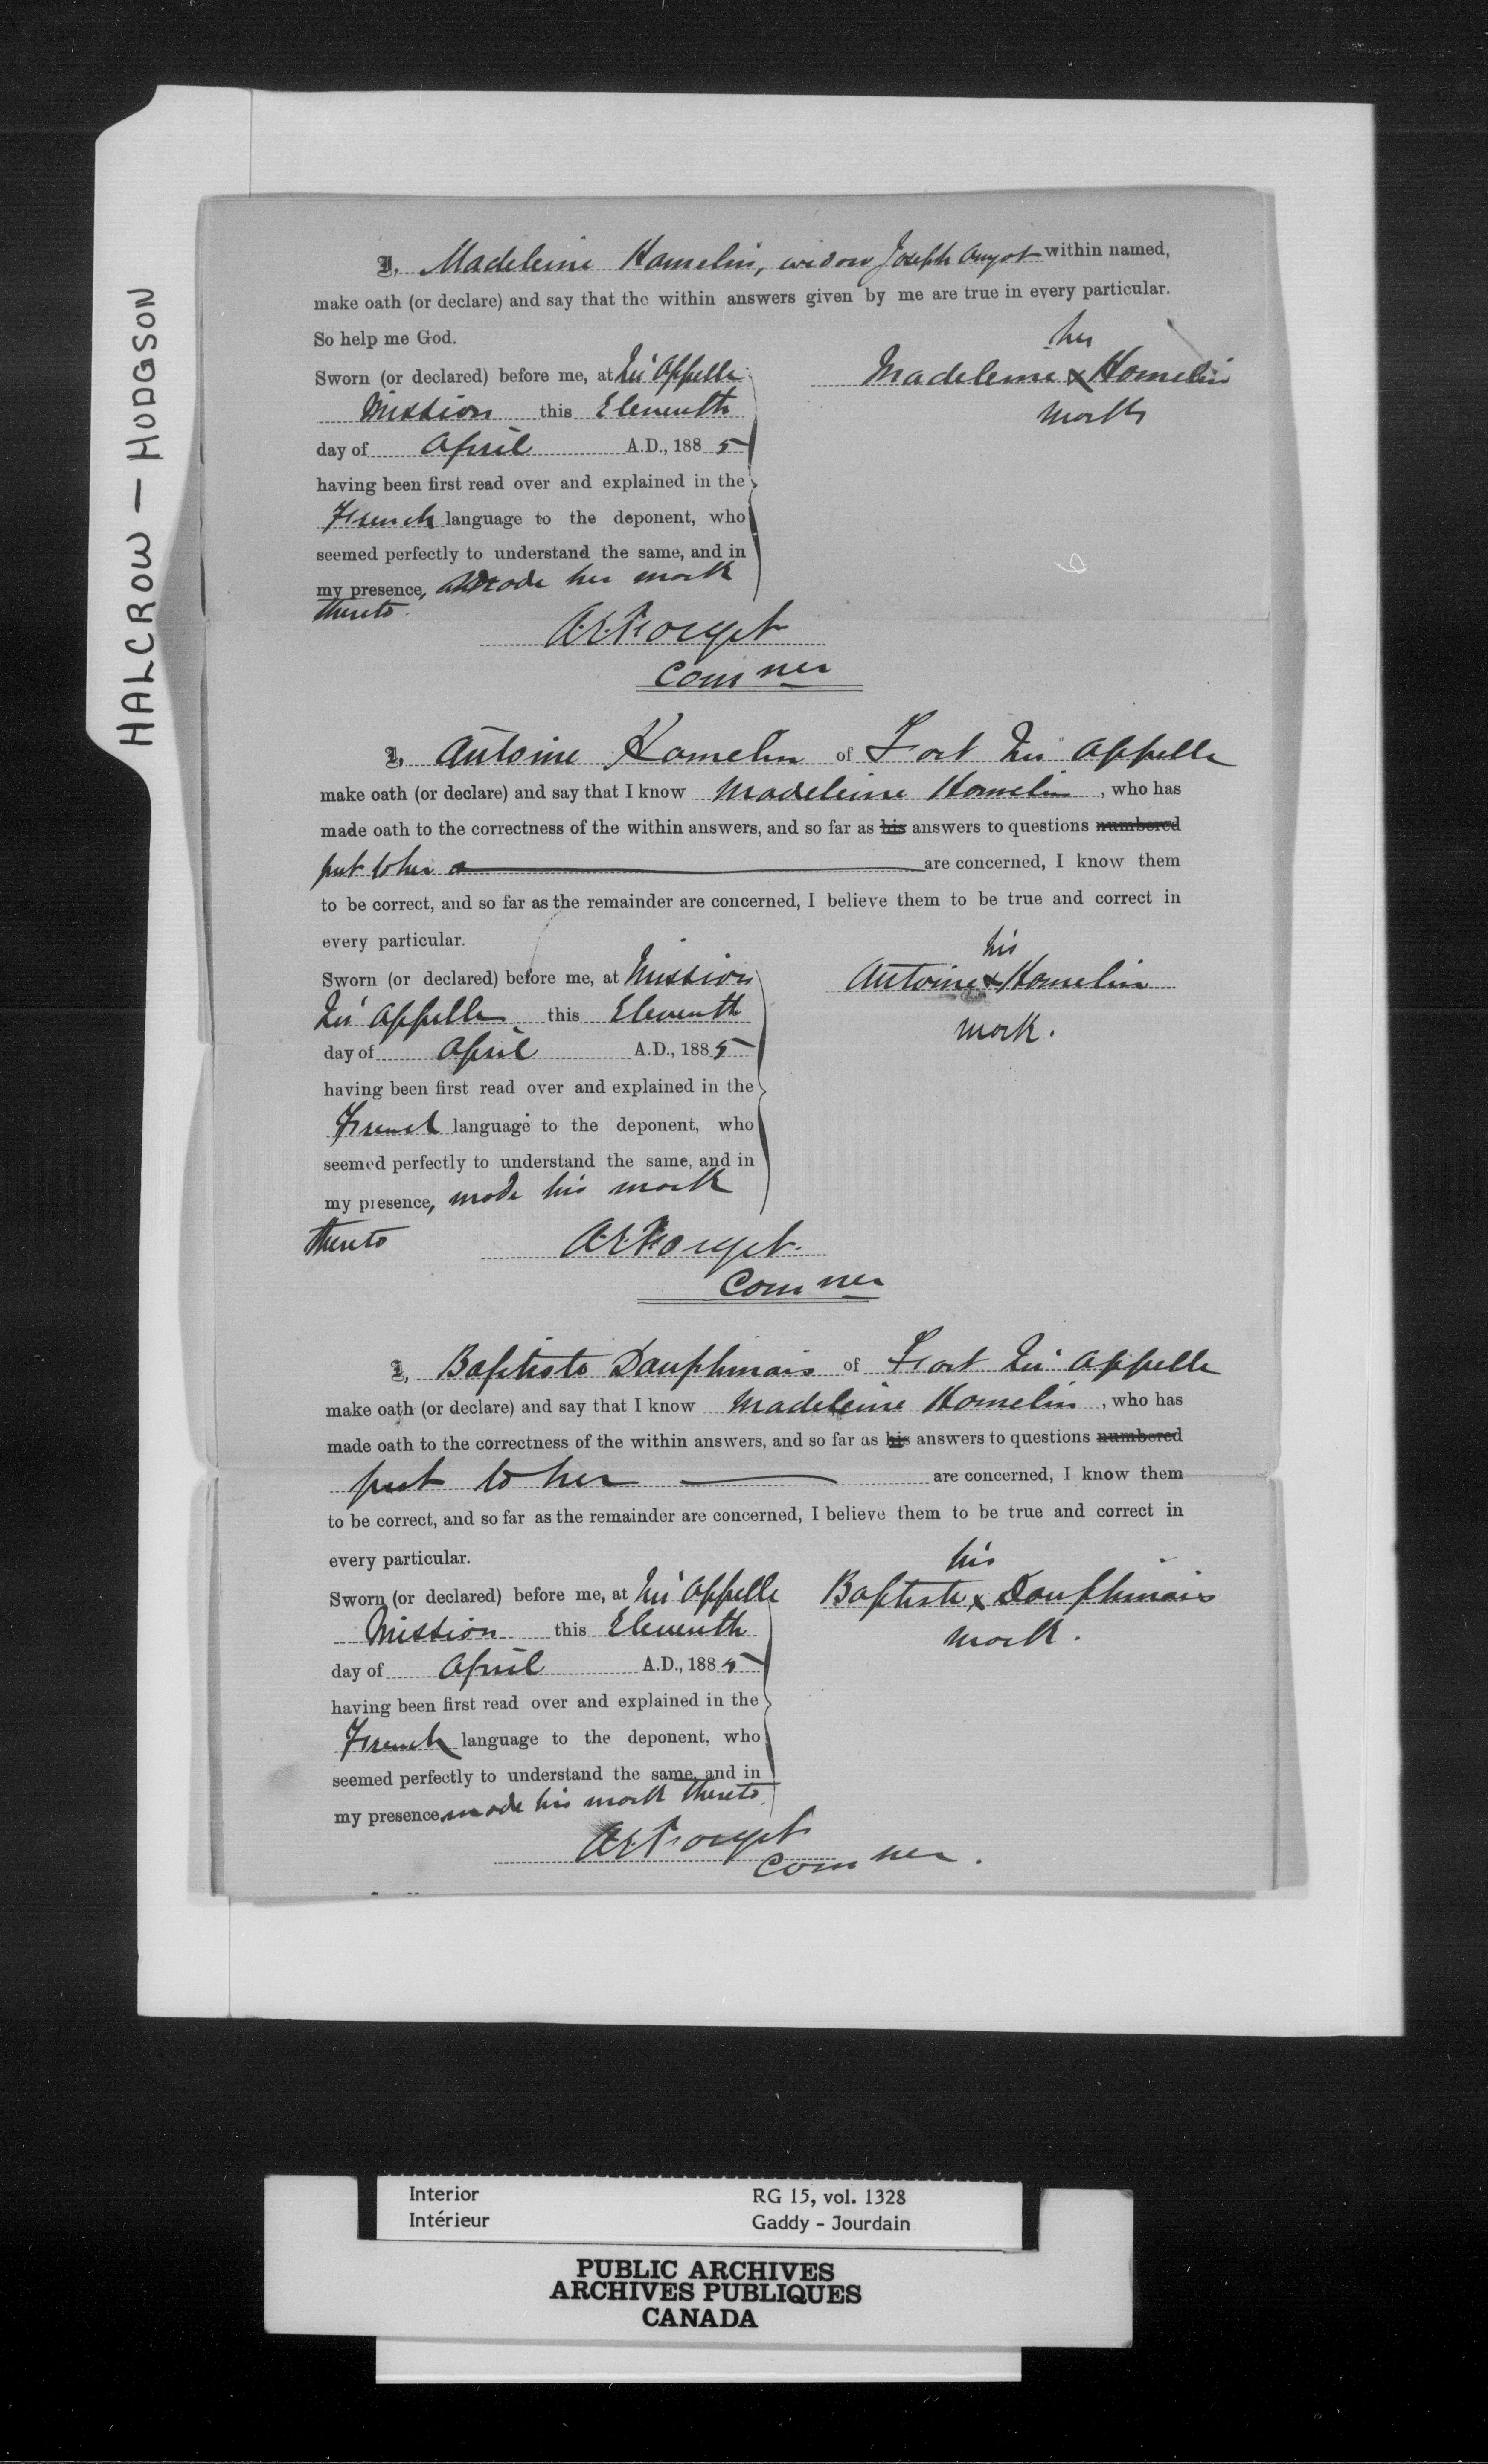 HALCROW — HODGSON
I, Madeleine Hamelin, widow Joseph Amyot within named,
make oath (or declare) and say that the within answers given by me are true in every particular.
So help me God.
her
Sworn (or declared) before me, at Qu'Appelle
Madeleine x Hamelin
Mission this Eleventh
mark
day of April A.D., 1885
having been first read over and explained in the
French language to the deponent, who
seemed perfectly to understand the same, and in
my presence, made her mark
thereto.
A.E. Forget
Comner
I, Antoine Hamelin of Fort Qu'Appelle
make oath (or declare) and say that I know Madeleine Hamelin, who has
made oath to the correctness of the within answers, and so far as his answers to questions numbered
put to her are concerned, I know them
to be correct, and so far as the remainder are concerned, I believe them to be true and correct in
every particular.
his
Sworn (or declared) before me, at Mission
Antoine x Hamelin
Qu'Appelle this Eleventh
mark.
day of April A.D., 1885
having been first read over and explained in the
French language to the deponent, who
seemed perfectly to understand the same, and in
my presence, made his mark
thereto
A.E. Forget.
Comner
I, Baptiste Dauphinais of Fort Qu'Appelle
make oath (or declare) and say that I know Madeleine Hamelin, who has
made oath to the correctness of the within answers, and so far as his answers to questions numbered
put to her — are concerned, I know them
to be correct, and so far as the remainder are concerned, I believe them to be true and correct in
every particular.
his
Sworn (or declared) before me, at Qu'Appelle
Baptiste x Dauphinais
Mission this Eleventh
mark.
day of April A.D., 1885
having been first read over and explained in the
French language to the deponent, who
seemed perfectly to understand the same, and in
my presence, made his mark thereto.
A.E. Forget
Comner.
Interior RG 15, vol. 1328
Intérieur Gaddy - Jourdain
PUBLIC ARCHIVES
ARCHIVES PUBLIQUES
CANADA